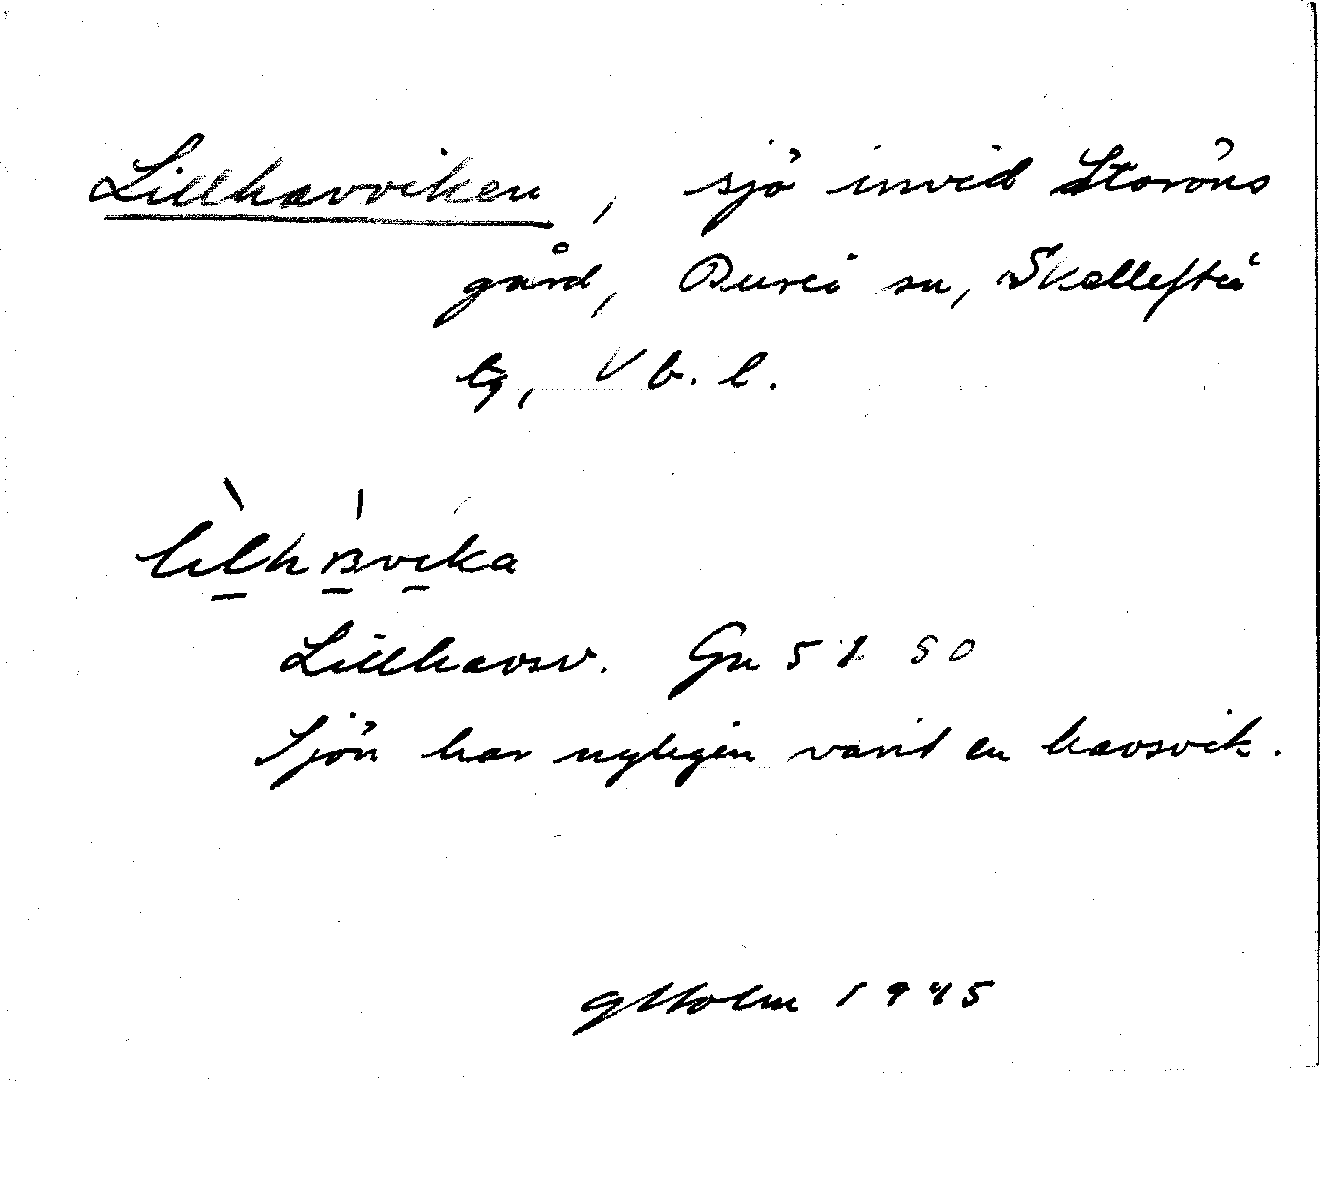 Lillhavviken, sjö invid Storöns
gård, Bureå sn, Skellefteå
tg, Vb. l.
Lillhavsv. Gn 57 SO
Sjön har nyligen varit en havsvik.
GHolm 1945